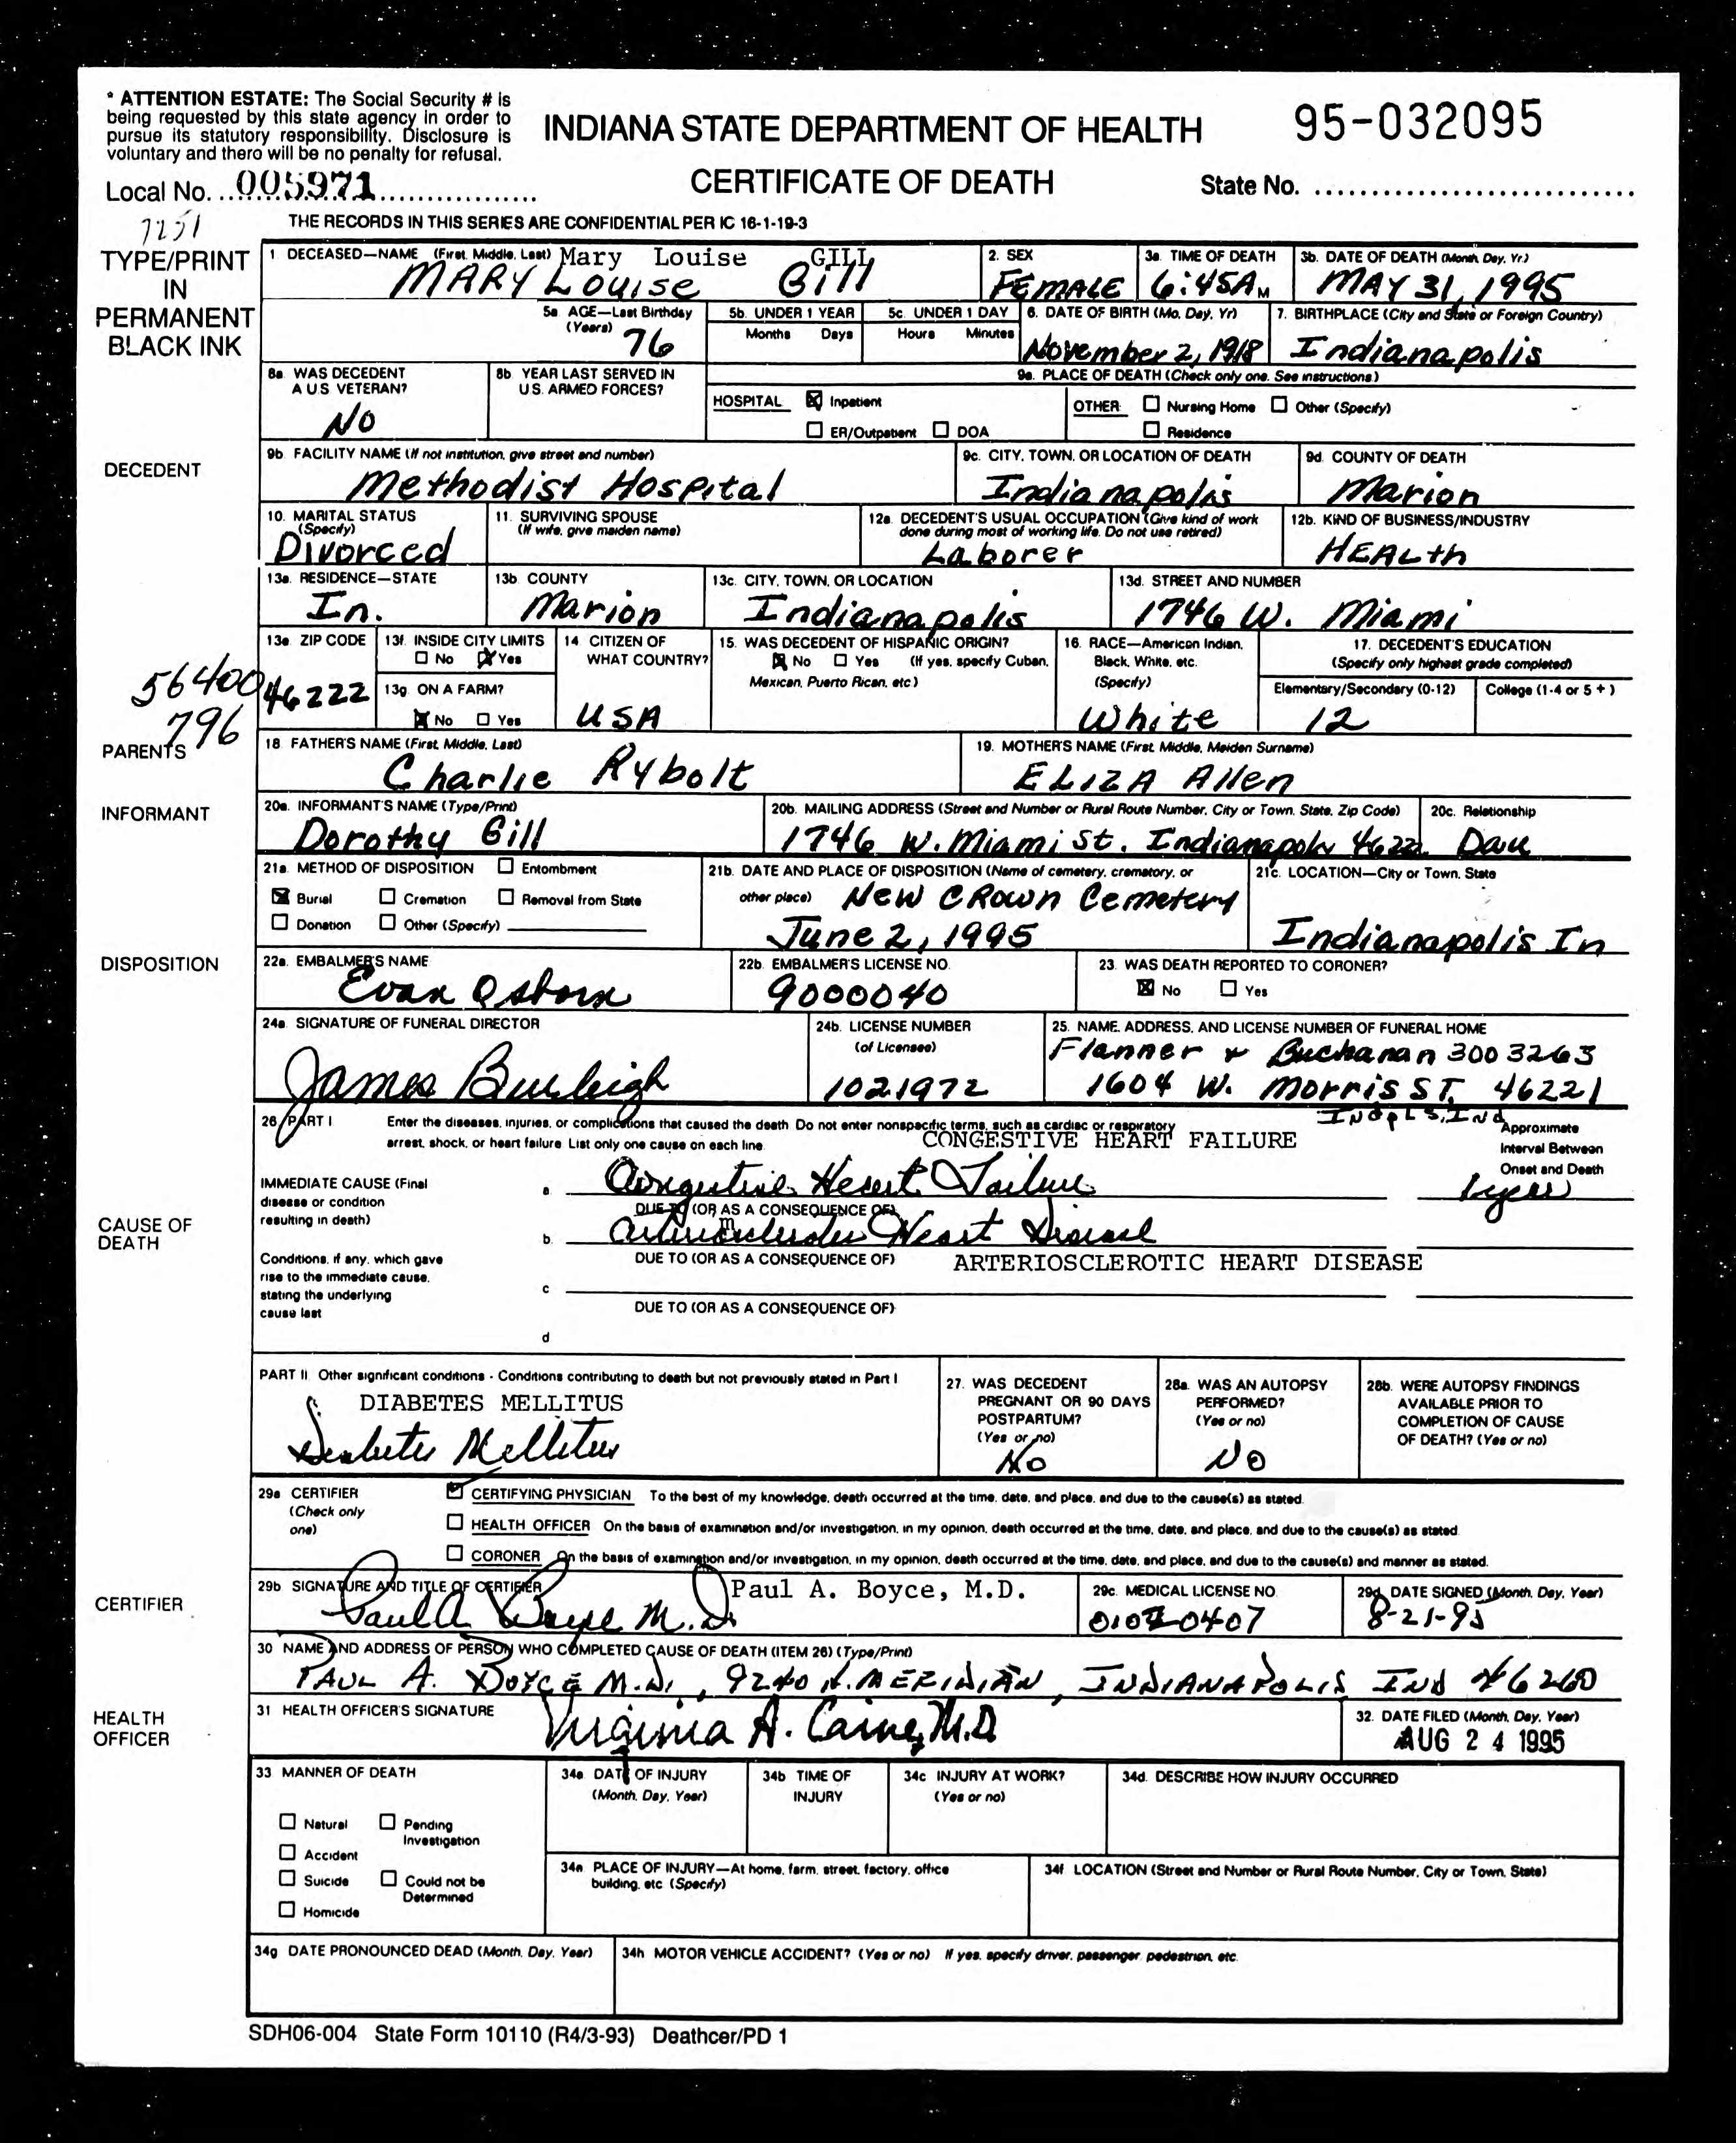 * ATTENTION ESTATE: The Social Security # is
being requested by this state agency in order to
pursue its statutory responsibility. Disclosure is
voluntary and there will be no penalty for refusal.
INDIANA STATE DEPARTMENT OF HEALTH
95-032095
Local No. 005971
CERTIFICATE OF DEATH
State No.
7251
THE RECORDS IN THIS SERIES ARE CONFIDENTIAL PER IC 16-1-19-3
TYPE/PRINT
IN
PERMANENT
BLACK INK
1 DECEASED—NAME (First, Middle, Last) Mary Louise GILL
MARY Louise Gill
2. SEX
FEMALE
3a. TIME OF DEATH
6:45A M
3b. DATE OF DEATH (Month, Day, Yr.)
MAY 31, 1995
5a AGE—Last Birthday
(Years) 76
5b. UNDER 1 YEAR
Months Days
5c. UNDER 1 DAY
Hours Minutes
6. DATE OF BIRTH (Mo, Day, Yr)
November 2, 1918
7. BIRTHPLACE (City and State or Foreign Country)
Indianapolis
DECEDENT
8a. WAS DECEDENT
A U.S. VETERAN?
No
8b. YEAR LAST SERVED IN
U.S. ARMED FORCES?
9a. PLACE OF DEATH (Check only one. See instructions)
HOSPITAL Inpatient
ER/Outpatient DOA
OTHER Nursing Home Other (Specify)
Residence
9b. FACILITY NAME (If not institution, give street and number)
Methodist Hospital
9c. CITY, TOWN, OR LOCATION OF DEATH
Indianapolis
9d. COUNTY OF DEATH
Marion
10. MARITAL STATUS
(Specify)
Divorced
11. SURVIVING SPOUSE
(If wife, give maiden name)
12a. DECEDENT'S USUAL OCCUPATION (Give kind of work
done during most of working life. Do not use retired)
Laborer
12b. KIND OF BUSINESS/INDUSTRY
HEALth
13a. RESIDENCE—STATE
In.
13b. COUNTY
Marion
13c. CITY, TOWN, OR LOCATION
Indianapolis
13d. STREET AND NUMBER
1746 W. Miami
13e. ZIP CODE
46222
13f. INSIDE CITY LIMITS
No Yes
13g. ON A FARM?
No Yes
14 CITIZEN OF
WHAT COUNTRY?
USA
15. WAS DECEDENT OF HISPANIC ORIGIN?
No Yes (If yes, specify Cuban,
Mexican, Puerto Rican, etc.)
16. RACE—American Indian,
Black, White, etc.
(Specify)
White
17. DECEDENT'S EDUCATION
(Specify only highest grade completed)
Elementary/Secondary (0-12) College (1-4 or 5 +)
12
56400
796
PARENTS
18. FATHER'S NAME (First, Middle, Last)
Charlie Rybolt
19. MOTHER'S NAME (First, Middle, Maiden Surname)
ELIZA Allen
INFORMANT
20a. INFORMANT'S NAME (Type/Print)
Dorothy Gill
20b. MAILING ADDRESS (Street and Number or Rural Route Number, City or Town, State, Zip Code)
1746 W. Miami St. Indianapolis 46222
20c. Relationship
Dau
DISPOSITION
21a. METHOD OF DISPOSITION Entombment
Burial Cremation Removal from State
Donation Other (Specify)
21b. DATE AND PLACE OF DISPOSITION (Name of cemetery, crematory, or
other place) New CROWN Cemetery
June 2, 1995
21c. LOCATION—City or Town, State
Indianapolis In
22a. EMBALMER'S NAME
Evan Osborn
22b. EMBALMER'S LICENSE NO.
9000040
23. WAS DEATH REPORTED TO CORONER?
No Yes
24a. SIGNATURE OF FUNERAL DIRECTOR
James Burleigh
24b. LICENSE NUMBER
(of Licensee)
1021972
25. NAME, ADDRESS, AND LICENSE NUMBER OF FUNERAL HOME
Flanner & Buchanan 3003263
1604 W. Morris ST. 46221
INDPLS, IND
CAUSE OF
DEATH
26. PART I Enter the diseases, injuries, or complications that caused the death. Do not enter nonspecific terms, such as cardiac or respiratory
arrest, shock, or heart failure. List only one cause on each line.
CONGESTIVE HEART FAILURE
Approximate
Interval Between
Onset and Death
IMMEDIATE CAUSE (Final
disease or condition
resulting in death)
a Congestive Heart Failure 1 year
DUE TO (OR AS A CONSEQUENCE OF)
b. Arteriosclerotic Heart Disease
Conditions, if any, which gave
rise to the immediate cause,
stating the underlying
cause last
DUE TO (OR AS A CONSEQUENCE OF) ARTERIOSCLEROTIC HEART DISEASE
c
DUE TO (OR AS A CONSEQUENCE OF)
d
PART II Other significant conditions - Conditions contributing to death but not previously stated in Part I
DIABETES MELLITUS
Diabetes Mellitus
27. WAS DECEDENT
PREGNANT OR 90 DAYS
POSTPARTUM?
(Yes or no)
No
28a. WAS AN AUTOPSY
PERFORMED?
(Yes or no)
NO
28b. WERE AUTOPSY FINDINGS
AVAILABLE PRIOR TO
COMPLETION OF CAUSE
OF DEATH? (Yes or no)
CERTIFIER
29a CERTIFIER
(Check only
one)
CERTIFYING PHYSICIAN To the best of my knowledge, death occurred at the time, date, and place, and due to the cause(s) as stated.
HEALTH OFFICER On the basis of examination and/or investigation, in my opinion, death occurred at the time, date, and place, and due to the cause(s) as stated.
CORONER On the basis of examination and/or investigation, in my opinion, death occurred at the time, date, and place, and due to the cause(s) and manner as stated.
29b SIGNATURE AND TITLE OF CERTIFIER Paul A. Boyce, M.D.
Paul A Boyce M.D.
29c. MEDICAL LICENSE NO.
29d. DATE SIGNED (Month, Day, Year)
8-21-95
30 NAME AND ADDRESS OF PERSON WHO COMPLETED CAUSE OF DEATH (ITEM 26) (Type/Print)
PAUL A. BOYCE M.D., 9240 N. MERIDIAN, INDIANAPOLIS IND 46260
HEALTH
OFFICER
31 HEALTH OFFICER'S SIGNATURE
Virginia A. Caine, M.D.
32. DATE FILED (Month, Day, Year)
AUG 24 1995
33 MANNER OF DEATH
Natural Pending
Investigation
Accident
Suicide Could not be
Determined
Homicide
34a. DATE OF INJURY
(Month, Day, Year)
34b TIME OF
INJURY
34c INJURY AT WORK?
(Yes or no)
34d. DESCRIBE HOW INJURY OCCURRED
34e. PLACE OF INJURY—At home, farm, street, factory, office
building, etc. (Specify)
34f LOCATION (Street and Number or Rural Route Number, City or Town, State)
34g DATE PRONOUNCED DEAD (Month, Day, Year)
34h MOTOR VEHICLE ACCIDENT? (Yes or no) If yes, specify driver, passenger, pedestrian, etc.
SDH06-004 State Form 10110 (R4/3-93) Deathcer/PD 1